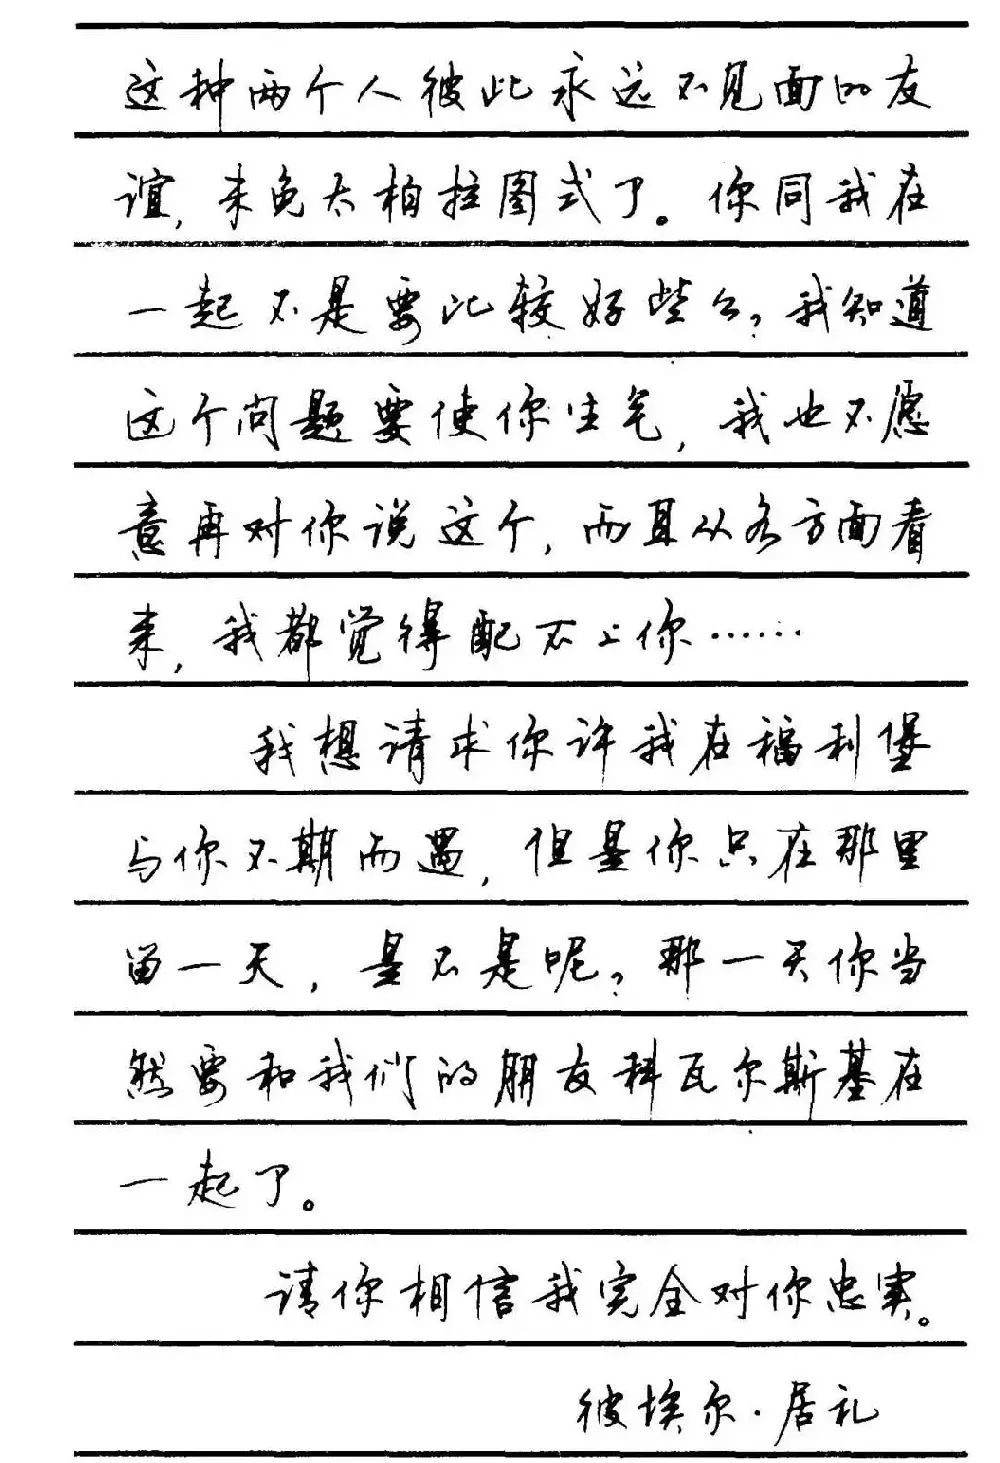 这种两个人彼此永远不见面的友
谊，未免太柏拉图式了。你同我在
一起不是要比较好些么？我知道
这个问题要使你生气，我也不愿
意再对你说这个，而且从各方面看
来，我都觉得配不上你……
我想请求你许我在福利堡
与你不期而遇，但是你只在那里
留一天，是不是呢？那一天你当
然要和我们的朋友科瓦尔斯基在
一起了。
请你相信我完全对你忠实。
彼埃尔·居礼